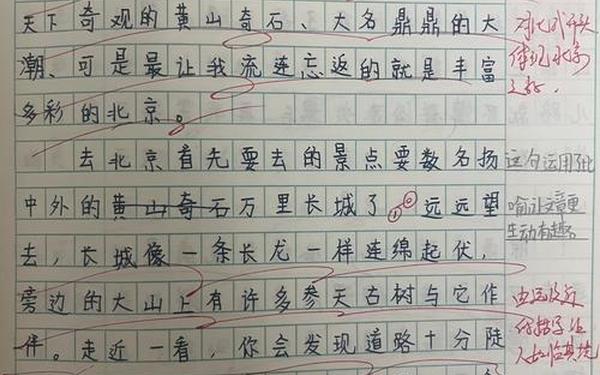 天下奇观的黄山奇石、大名鼎鼎的大
潮、可是最让我流连忘返的就是丰富
多彩的北京。
去北京首先要去的景点要数名扬
中外的黄山奇石万里长城了。远远望
去，长城像一条长龙一样连绵起伏，
旁边的大山上有许多参天古树与它作
伴。走近一看，你会发现道路十分陡
对比式开头
体现北京
之好。
这句运用了比
喻让文章更
生动有趣。
由远及近
的描写让
人如临其境